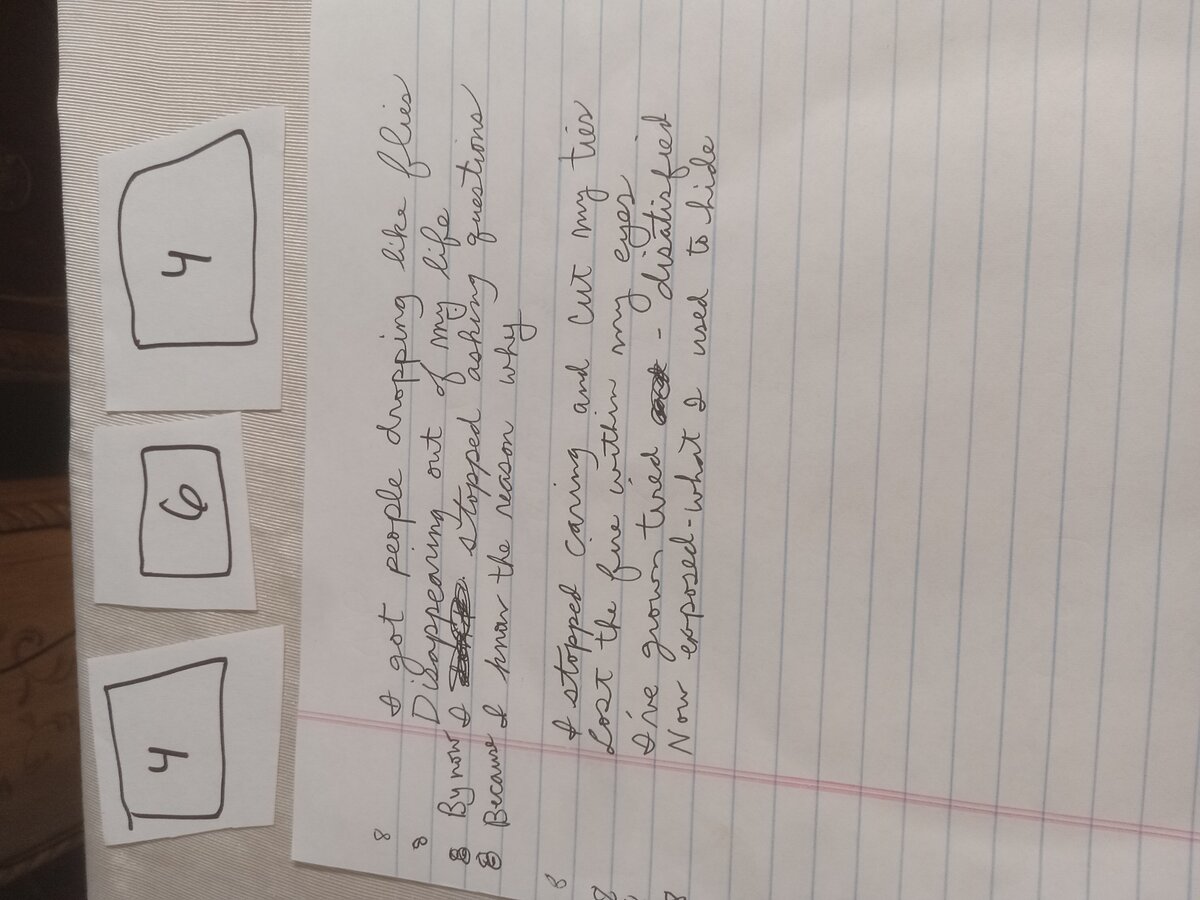 4
6
4
8 I got people dropping like flies
8 Disappearing out of my life
8 By now I stopped asking questions
8 Because I know the reason why
8 I stopped caring and cut my ties
8 Lost the fire within my eyes
I've grown tired - disatisfied
8 Now exposed - what I used to hide